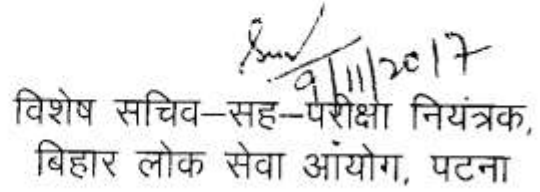 9/11/2017
विशेष सचिव–सह–परीक्षा नियंत्रक,
बिहार लोक सेवा आंयोग, पटना